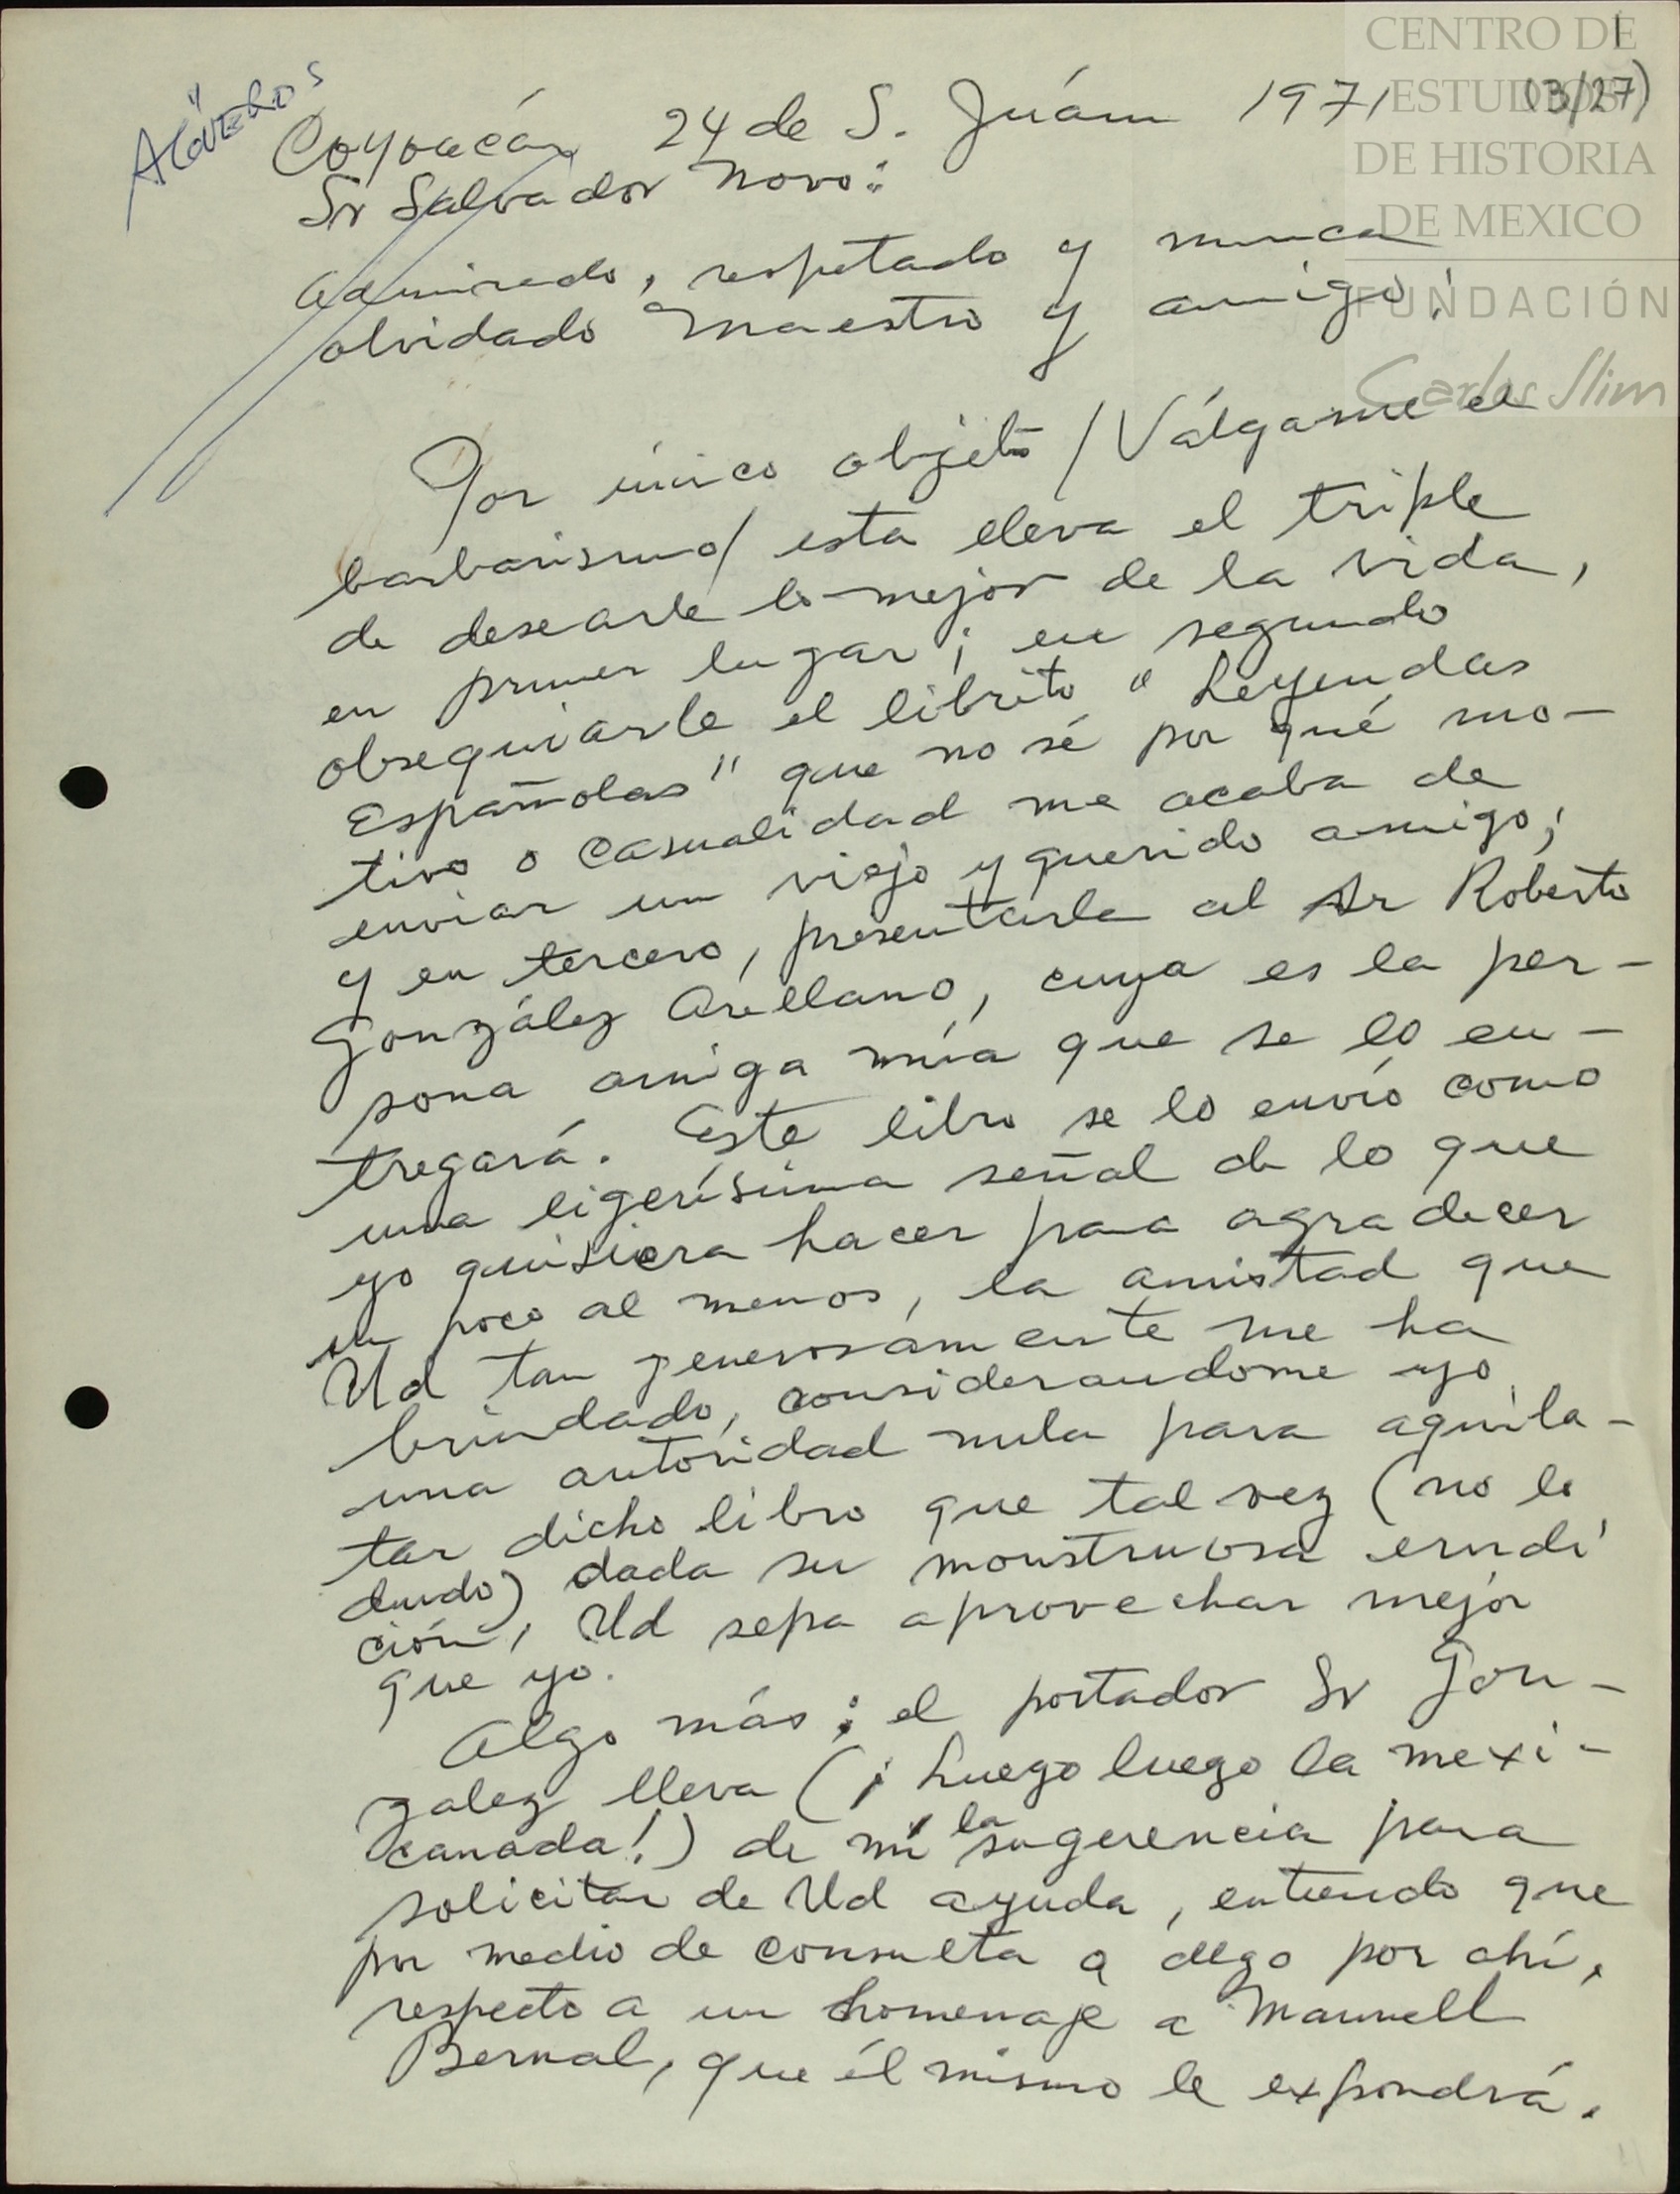 1
CENTRO DE
ESTUDIOS
DE HISTORIA
DE MEXICO
FUNDACIÓN
Carlos Slim
(3/27)
Coyoacán 24 de S. Juán 1971
Sr Salvador Novo:
Admirado, respetado y nunca
olvidado Maestro y amigo:
Por único objeto /Válgame el
barbarismo/ esta lleva el triple
de desearle lo mejor de la vida,
en primer lugar; en segundo
obsequiarle el librito "Leyendas
Españolas" que no sé por qué mo-
tivo o casualidad me acaba de
enviar un viejo y querido amigo;
y en tercero, presentarle al Sr Roberto
González Arellano, cuya es la per-
sona amiga mía que se lo en-
tregará. Este libro se lo envío como
una ligerísima señal de lo que
yo quisiera hacer para agradecer
un poco al menos, la amistad que
Ud tan generosamente me ha
brindado, considerandome yo
una autoridad nula para aquila-
tar dicho libro que tal vez (no lo
dudo) dada su monstruosa erudi
ción, Ud sepa aprovechar mejor
que yo.
Algo más; el portador Sr Gon-
zalez lleva (¡Luego luego la mexi-
canada!) de mí la sugerencia para
solicitar de Ud ayuda, entiendo que
por medio de consulta a algo por ahí,
respecto a un homenaje a Manuell
Bernal, que él mismo le expondrá.